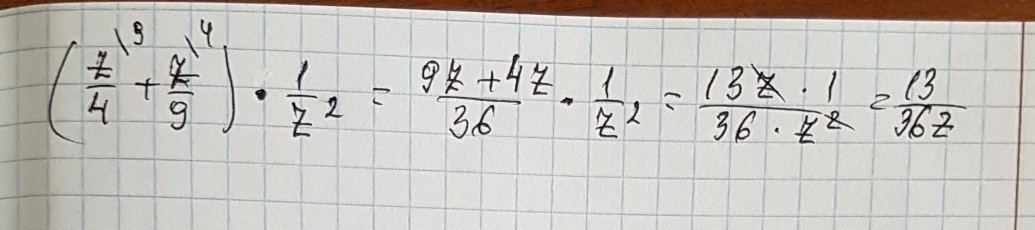 (z/4\9 + z/9\4) · 1/z² = 9z+4z/36 · 1/z² = 13z · 1/36 · z² = 13/36z